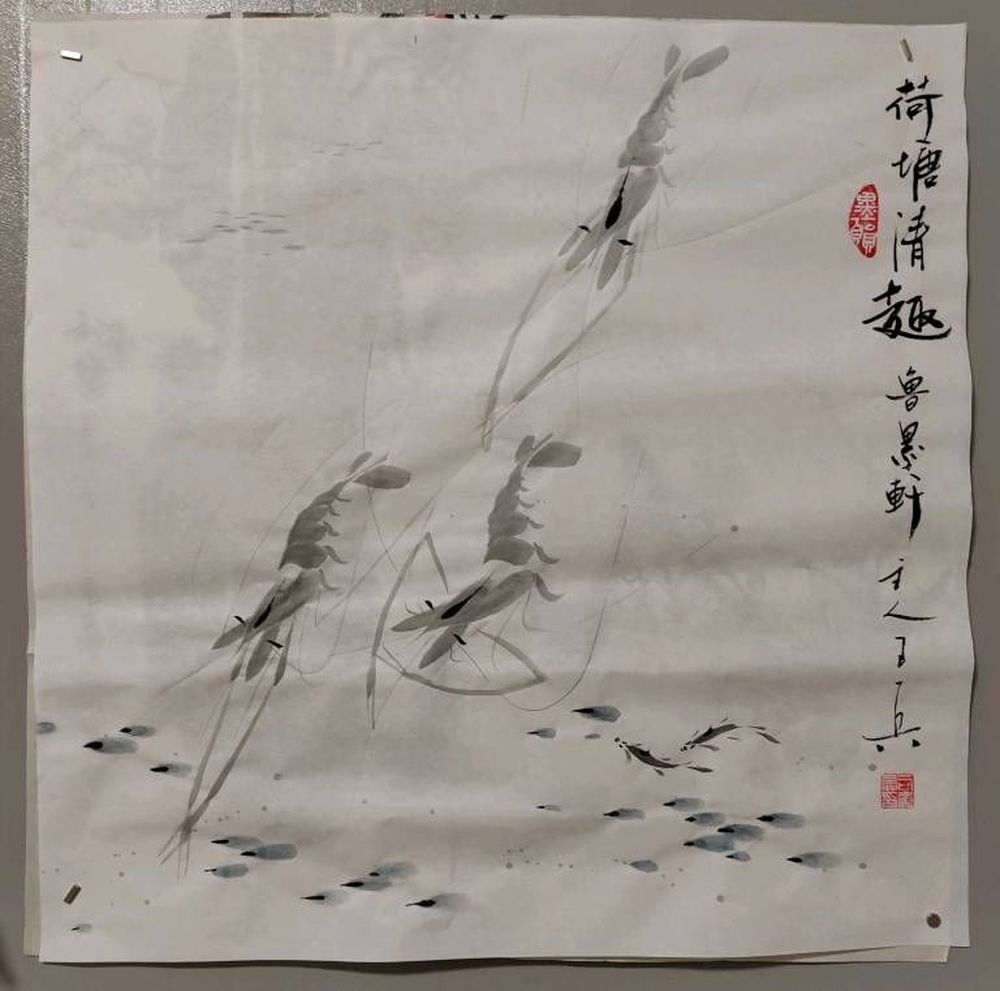 荷塘清趣
魯墨軒主人王兵
墨韻